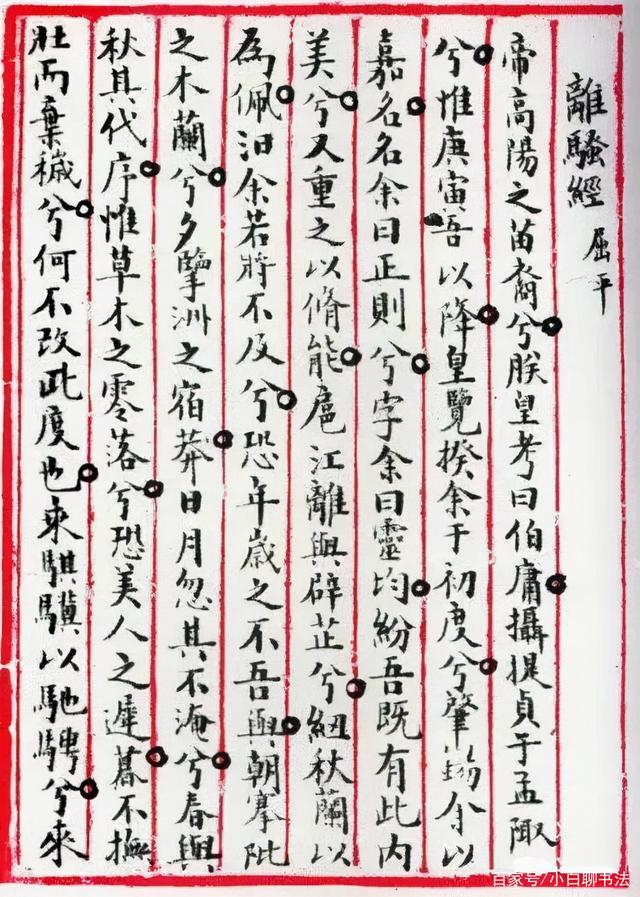 離騷經 屈平
帝高陽之苗裔兮朕皇考曰伯庸攝提貞于孟陬
兮惟庚寅吾以降皇覽揆余于初度兮肇錫余以
嘉名名余曰正則兮字余曰靈均紛吾既有此内
美兮又重之以脩能扈江離與辟芷兮紉秋蘭以
為佩汨余若將不及兮恐年歲之不吾與朝搴阰
之木蘭兮夕擥洲之宿莽日月忽其不淹兮春與
秋其代序惟草木之零落兮恐美人之遲暮不撫
壯而棄穢兮何不改此度也乘騏驥以馳騁兮來
百家号/小白聊书法